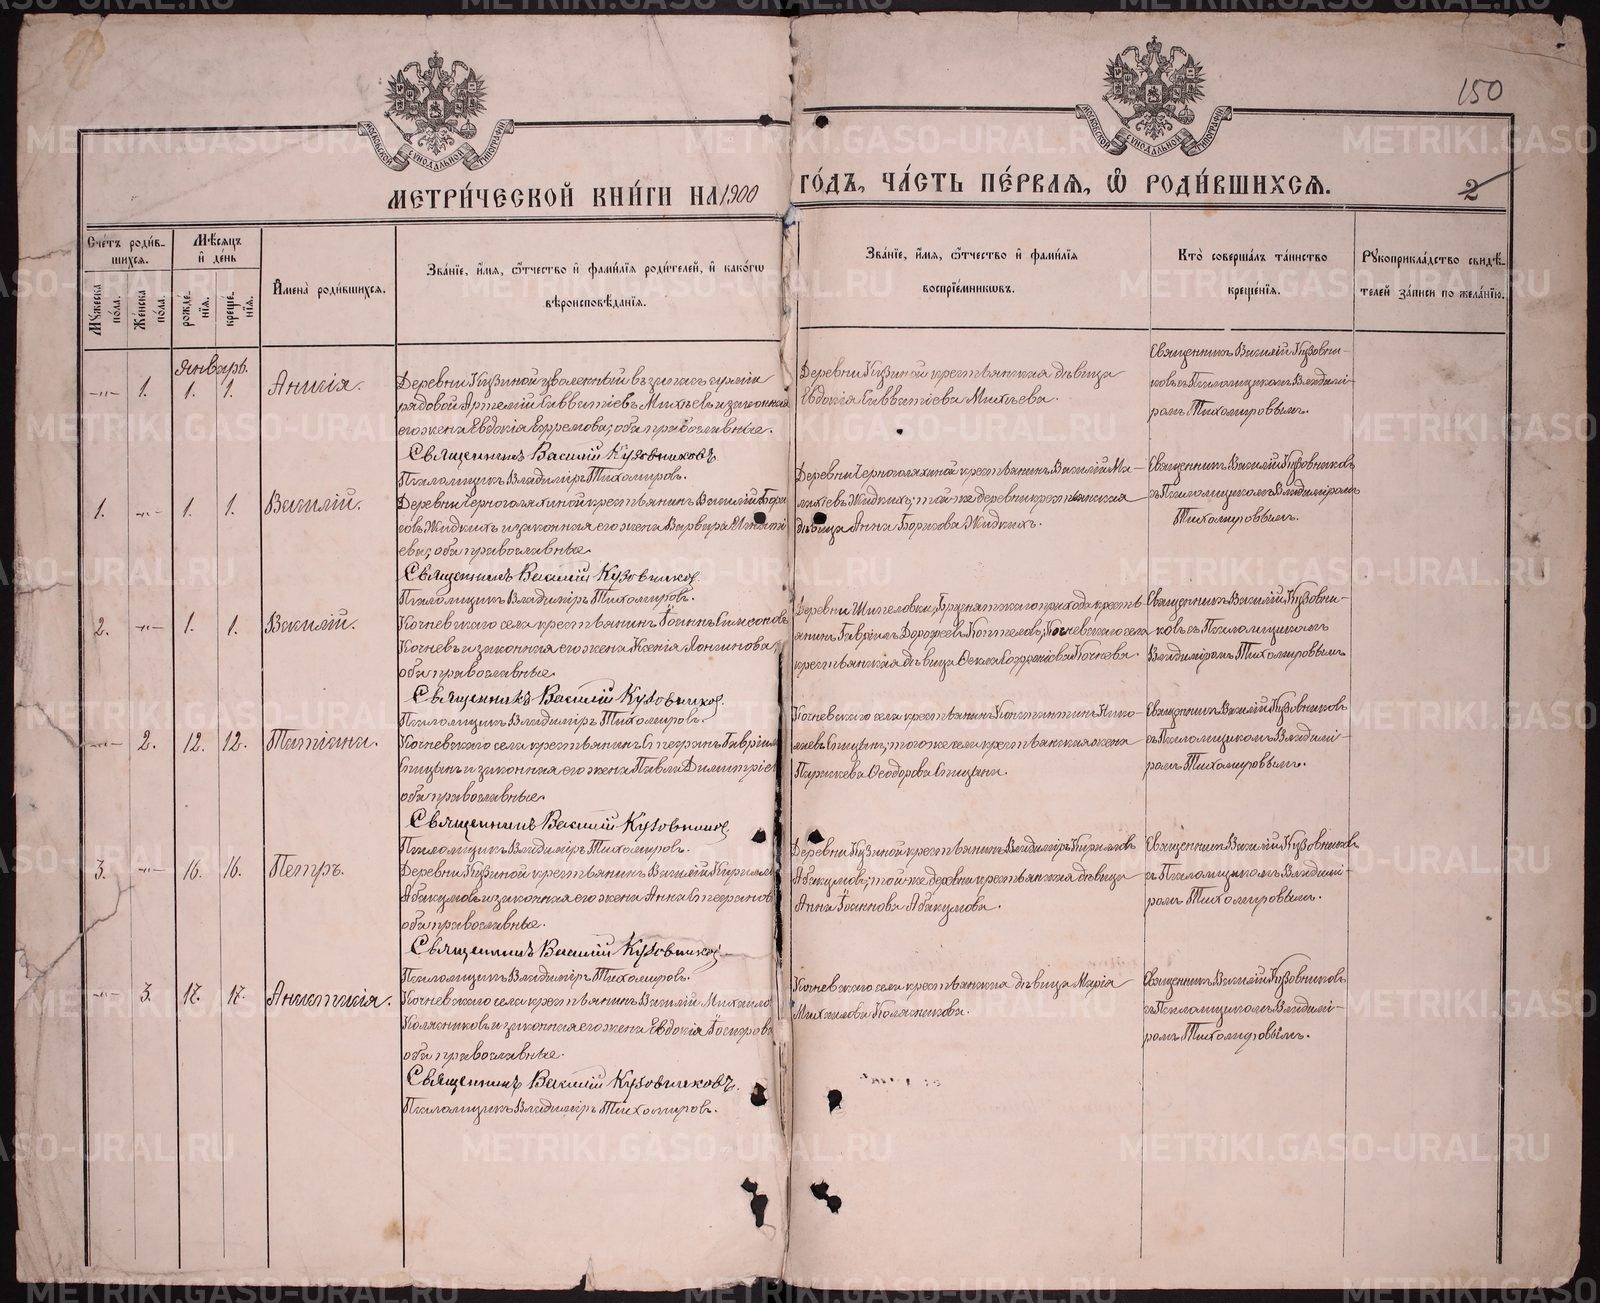 150
МЕТРИ́ЧЕСКОЙ КНИ́ГИ НА 1900 ГО́ДЪ, ЧА́СТЬ ПЕ́РВАЯ, Ѡ҆ РОДИ́ВШИХСЯ.
2
Сче́тъ роди́в-
шихся.
Мѣ́сяцъ
и҆ де́нь
Муже́ска
по́ла.
Же́нска
по́ла.
рожде́-
нїѧ.
креще́-
нїѧ.
И҆мена̀ роди́вшихся.
Зва́нїе, и҆́мѧ, ѻ҆́тчество и҆ фами́лїѧ роди́телей, и҆ како́гѡ
вѣроисповѣ́данїѧ.
Зва́нїе, и҆́мѧ, ѻ҆́тчество и҆ фами́лїѧ
воспрїе́мникѡвъ.
Кто̀ соверша́лъ та́инство
креще́нїѧ.
Рꙋкоприкла́дство свидѣ́-
телей за́писи по жела́нїю.
Январь.
-"- 1. 1. 1. Анисія.
Деревни Кузиной уволенный въ запасъ арміи
рядовой Артемій Савватіевъ Михѣевъ и законная
его жена Евдокія Ефремова; оба православные.
Священникъ Василій Кузовниковъ
Псаломщикъ Владиміръ Тихомировъ.
Деревни Кузиной крестьянская дѣвица
Евдокія Савватіева Михѣева.
Священникъ Василій Кузовни-
ковъ съ Псаломщикомъ Владимі-
ромъ Тихомировымъ.
1. -"- 1. 1. Василій.
Деревни Черноголяхиной крестьянинъ Василій Бори
совъ Жидкихъ и законная его жена Варвара Игнаті
ева; оба православные.
Священникъ Василій Кузовников
Псаломщикъ Владиміръ Тихомировъ.
Деревни Черноголяхиной крестьянинъ Василій Ма-
Жидкихъ; той же деревни крестьянская
дѣвица Анна Борисова Жидкихъ.
Священникъ Василій Кузовниковъ
съ Псаломщикомъ Владиміромъ
Тихомировымъ.
2. -"- 1. 1. Василій.
Кочневскаго села крестьянинъ Іоаннъ Самсоновъ
Кочневъ и законная его жена Ксенія Лонгинова,
оба православные.
Священникъ Василій Кузовников.
Псаломщикъ Владиміръ Тихомировъ.
Деревни Шипеловки, прихода кресть-
янинъ Гавріилъ Дороѳеевъ Коптеловъ; Кочневскаго села
крестьянская дѣвица Ѳекла Софроніева Кочнева.
Священникъ Василій Кузовни-
ковъ съ Псаломщикомъ
Владиміромъ Тихомировымъ
-"- 2. 12. 12. Татіана.
Кочневскаго села крестьянинъ Стефанъ Гавріил
Спицынъ и законная его жена Павла Димитріе
оба православные.
Священникъ Василій Кузовников
Псаломщикъ Владиміръ Тихомировъ.
Кочневскаго села крестьянинъ Константинъ Нико-
лаевъ Спицынъ; того же села крестьянская жена
Параскева Ѳеодорова Спицына.
Священникъ Василій Кузовниковъ
съ Псаломщикомъ Владимі-
ромъ Тихомировымъ.
3. -"- 16. 16. Петръ.
Деревни Кузиной крестьянинъ Василій Кирилл
Абакумовъ и законная его жена Анна Стефанов
оба православные.
Священникъ Василій Кузовников
Псаломщикъ Владиміръ Тихомировъ.
Деревни Кузиной крестьянинъ Владиміръ Кирилловъ
Абакумовъ; той же деревни крестьянская дѣвица
Анна Іоаннова Абакумова.
Священникъ Василій Кузовниковъ
съ Псаломщикомъ Владимі-
ромъ Тихомировымъ.
-"- 3. 17. 17. Анастасія.
Кочневскаго села крестьянинъ Василій Михайло
Колясниковъ и законная его жена Евдокія Іосифова
оба православные.
Священникъ Василій Кузовниковъ.
Псаломщикъ Владиміръ Тихомировъ.
Кочневскаго села крестьянская дѣвица Марія
Михайлова Колясникова.
Священникъ Василій Кузовниковъ
съ Псаломщикомъ Владимі-
ромъ Тихомировымъ.
METRIKI.GASO-URAL.RU